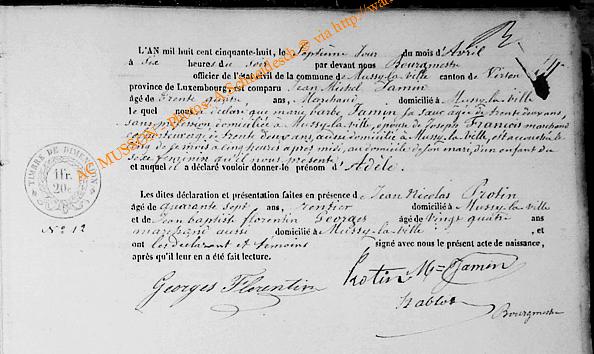 L'AN mil huit cent cinquante-huit, le Septième jour du mois d'Avril
à six heures du soir par devant nous Bourgmestre
officier de l'état civil de la commune de Mussy-la-ville canton de Virton
province de Luxembourg, est comparu Jean Michel Jamin
âgé de trente quatre ans, Marchand domicilié à Mussy-la-ville
le quel nous a déclaré que marie barbe Jamin, sa sœur agée de trente deux ans,
sans profession domiciliée à Mussy-la-ville, épouse de Joseph François marchand
de trente deux ans aussi domicilié à Mussy-la-ville, est accouchée le
de ce mois à cinq heures après midi, au domicile de son mari, d'un enfant du
sexe féminin qu'il nous présente,
et auquel il a déclaré vouloir donner le prénom d'Adèle.
Les dites déclaration et présentation faites en présence de Jean Nicolas Protin
âgé de quarante sept ans, rentier domicilié à Mussy-la-ville
et de Jean baptiste florentin Georges âgé de Vingt quatre ans
marchand aussi domicilié à Mussy-la-ville, et
ont les déclarant et témoins signé avec nous le présent acte de naissance,
après qu'il leur en a été fait lecture.
TIMBRE DE DIMENSION
1 fr.
20 c.
N° 12
Georges Florentin Protin M= Jamin
Bourgmestre
AC MUSSON - Photos A Schneidesch © via http://